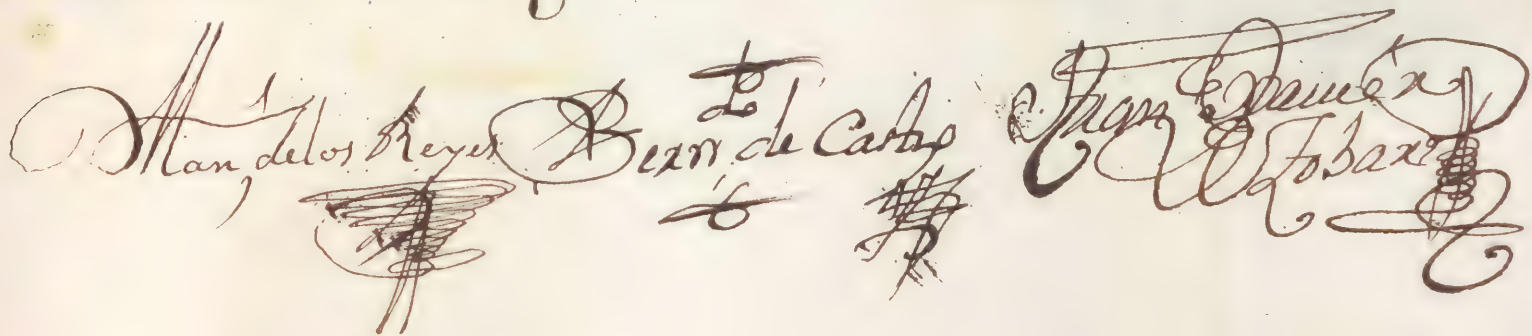 Man, de los Reyes
Bern de Castro
Juan Xavier
Tobar